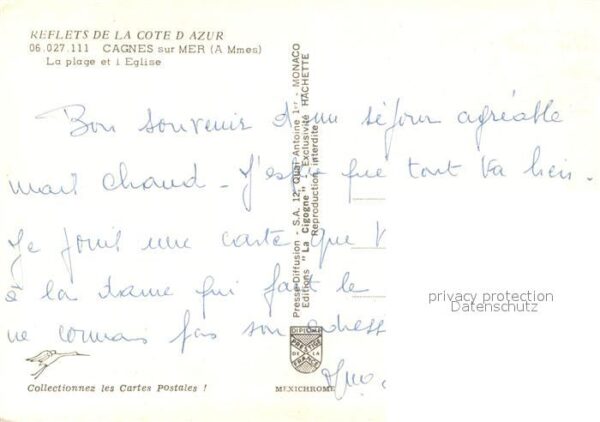 REFLETS DE LA COTE D AZUR
06.027.111 CAGNES sur MER (A Mmes)
La plage et l Eglise
Bon souvenir d'un séjour agréable
mais chaud - J'espère que tout va bien.
Je joins une carte que
à la dame qui fait le
ne connais pas son adress
Presse-Diffusion - S.A. 12, Quai Antoine 1er - MONACO
Editions "La Cigogne" Exclusivité HACHETTE
Reproduction interdite
privacy protection
Datenschutz
DIPLOME
PRESTIGE
DE LA
FRANCE
Collectionnez les Cartes Postales !
MEXICHROME